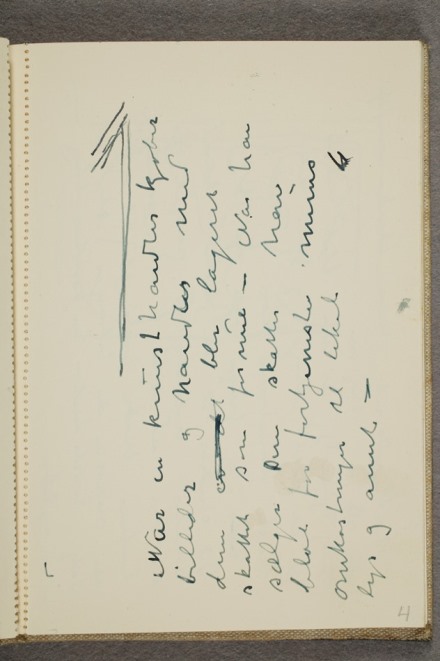 Når en kunsthandler kjøber
billeder og handler med
dem blir lageret
skattet som formue – Når han
sælger dem skattes han
blot for fortjeneste minus
omkostninger til lokale
lys og andet –
4